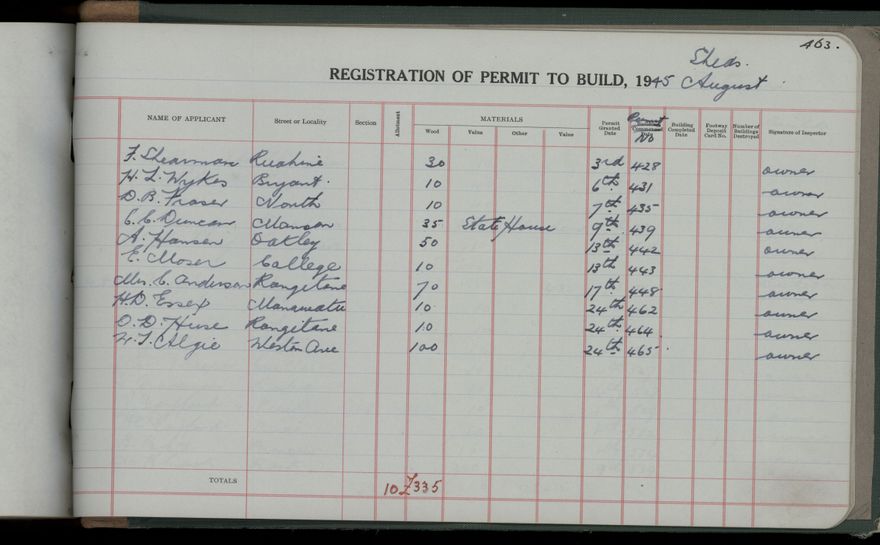 463.
Sheds.
REGISTRATION OF PERMIT TO BUILD, 1945 August
NAME OF APPLICANT Street or Locality Section Allotment MATERIALS Permit Granted Date Permit No Building Completed Date Footway Deposit Card No. Number of Buildings Destroyed Signature of Inspector
Wood Value Other Value
F. Shearman Ruahine 30 3rd 428 owner
H. L. Wykes Bryant. 10 6th 431 owner
D. B. Fraser North 10 7th 435 owner
C. C. Duncan Manson 35 State House 9th 439 owner
A. Hansen Oakley 50 13th 442 owner
E. Moser College 10 13th 443 owner
Mrs. C. Anderson Rangitane 70 17th 448 owner
H. D. Essex Manawatu 10 24th 462 owner
O. D. Huse Rangitane 10 24th 464 owner
Algie Weston Ave 100 24th 465 owner
TOTALS 10 £335